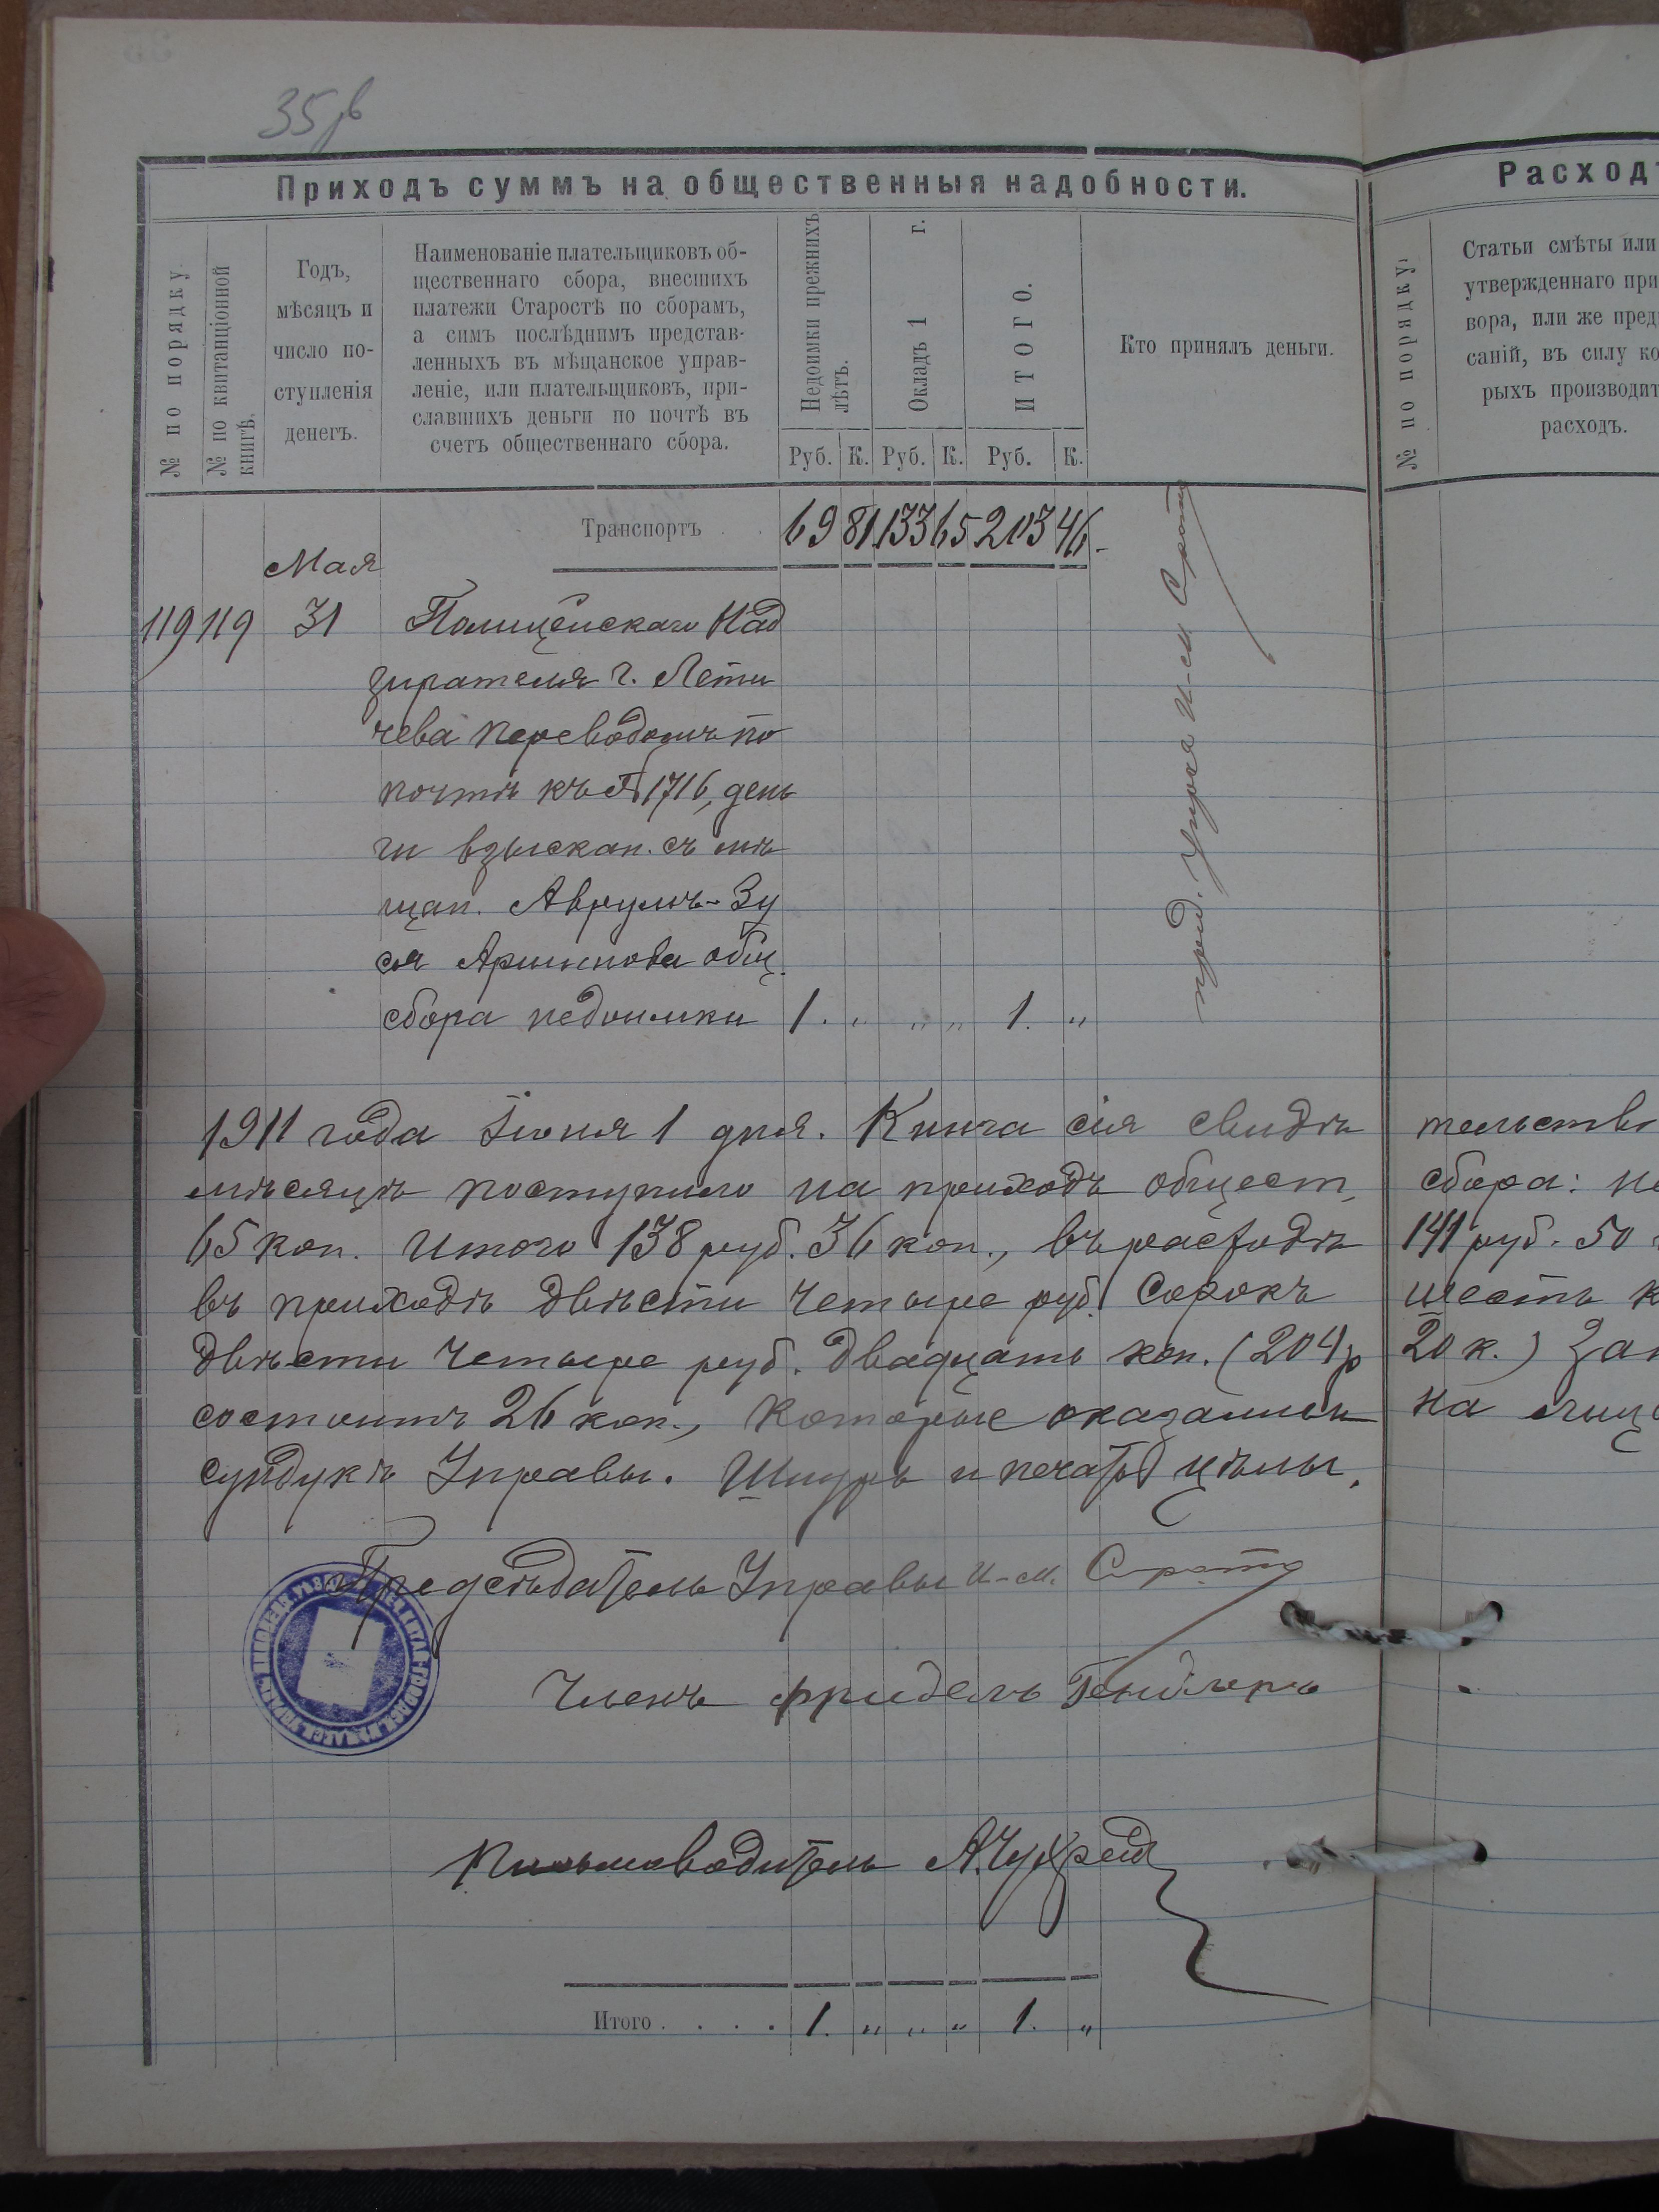 35
Приходъ суммъ на общественныя надобности.
№ по порядку.
№ по квитанціонной
книгѣ.
Годъ,
мѣсяцъ и
число по-
ступленія
денегъ.
Наименованіе плательщиковъ об-
щественнаго сбора, внесшихъ
платежи Старостѣ по сборамъ,
а симъ послѣднимъ представ-
ленныхъ въ мѣщанское управ-
леніе, или плательщиковъ, при-
славшихъ деньги по почтѣ въ
счетъ общественнаго сбора.
Недоимки прежнихъ
лѣтъ.
Окладъ 1 г.
ИТОГО.
Кто принялъ деньги.
Руб. К. Руб. К. Руб. К.
Транспортъ . . 69 81 133 65 203 46
Мая
119 119 31 Полицейскаго Над
зирателя г. Лети
чева переводомъ по
почтѣ къ № 1716, день
ги взыскан. съ мѣ
щан. Аврумъ-Зу
ся общ.
сбора недоимки 1. " " " 1. "
пред. Управ. И-м
1911 года Іюня 1 дня. Книга сія свидѣ
мѣсяцѣ поступило на приходъ общест.
65 коп. Итого 138 руб. 36 коп., въ расходѣ
въ приходѣ двѣсти четыре руб. сорокъ
двѣсти четыре руб. двадцать коп. (204 р
состоитъ 26 коп., которые оказались
сундукѣ Управы. Шнуръ и печать цѣлы.
Предсѣдатель Управы И-м.
Членъ Фридель Гендлеръ
Письмоводитель
Итого . . . . 1. " " " 1. "
Расходъ
№ по порядку.
Статьи смѣты или
утвержденнаго при
вора, или же пред
саній, въ силу ко
рыхъ производит
расходъ.
тельств
сбора: не
141 руб. 50
шесть к
20 к.) за
на лиц